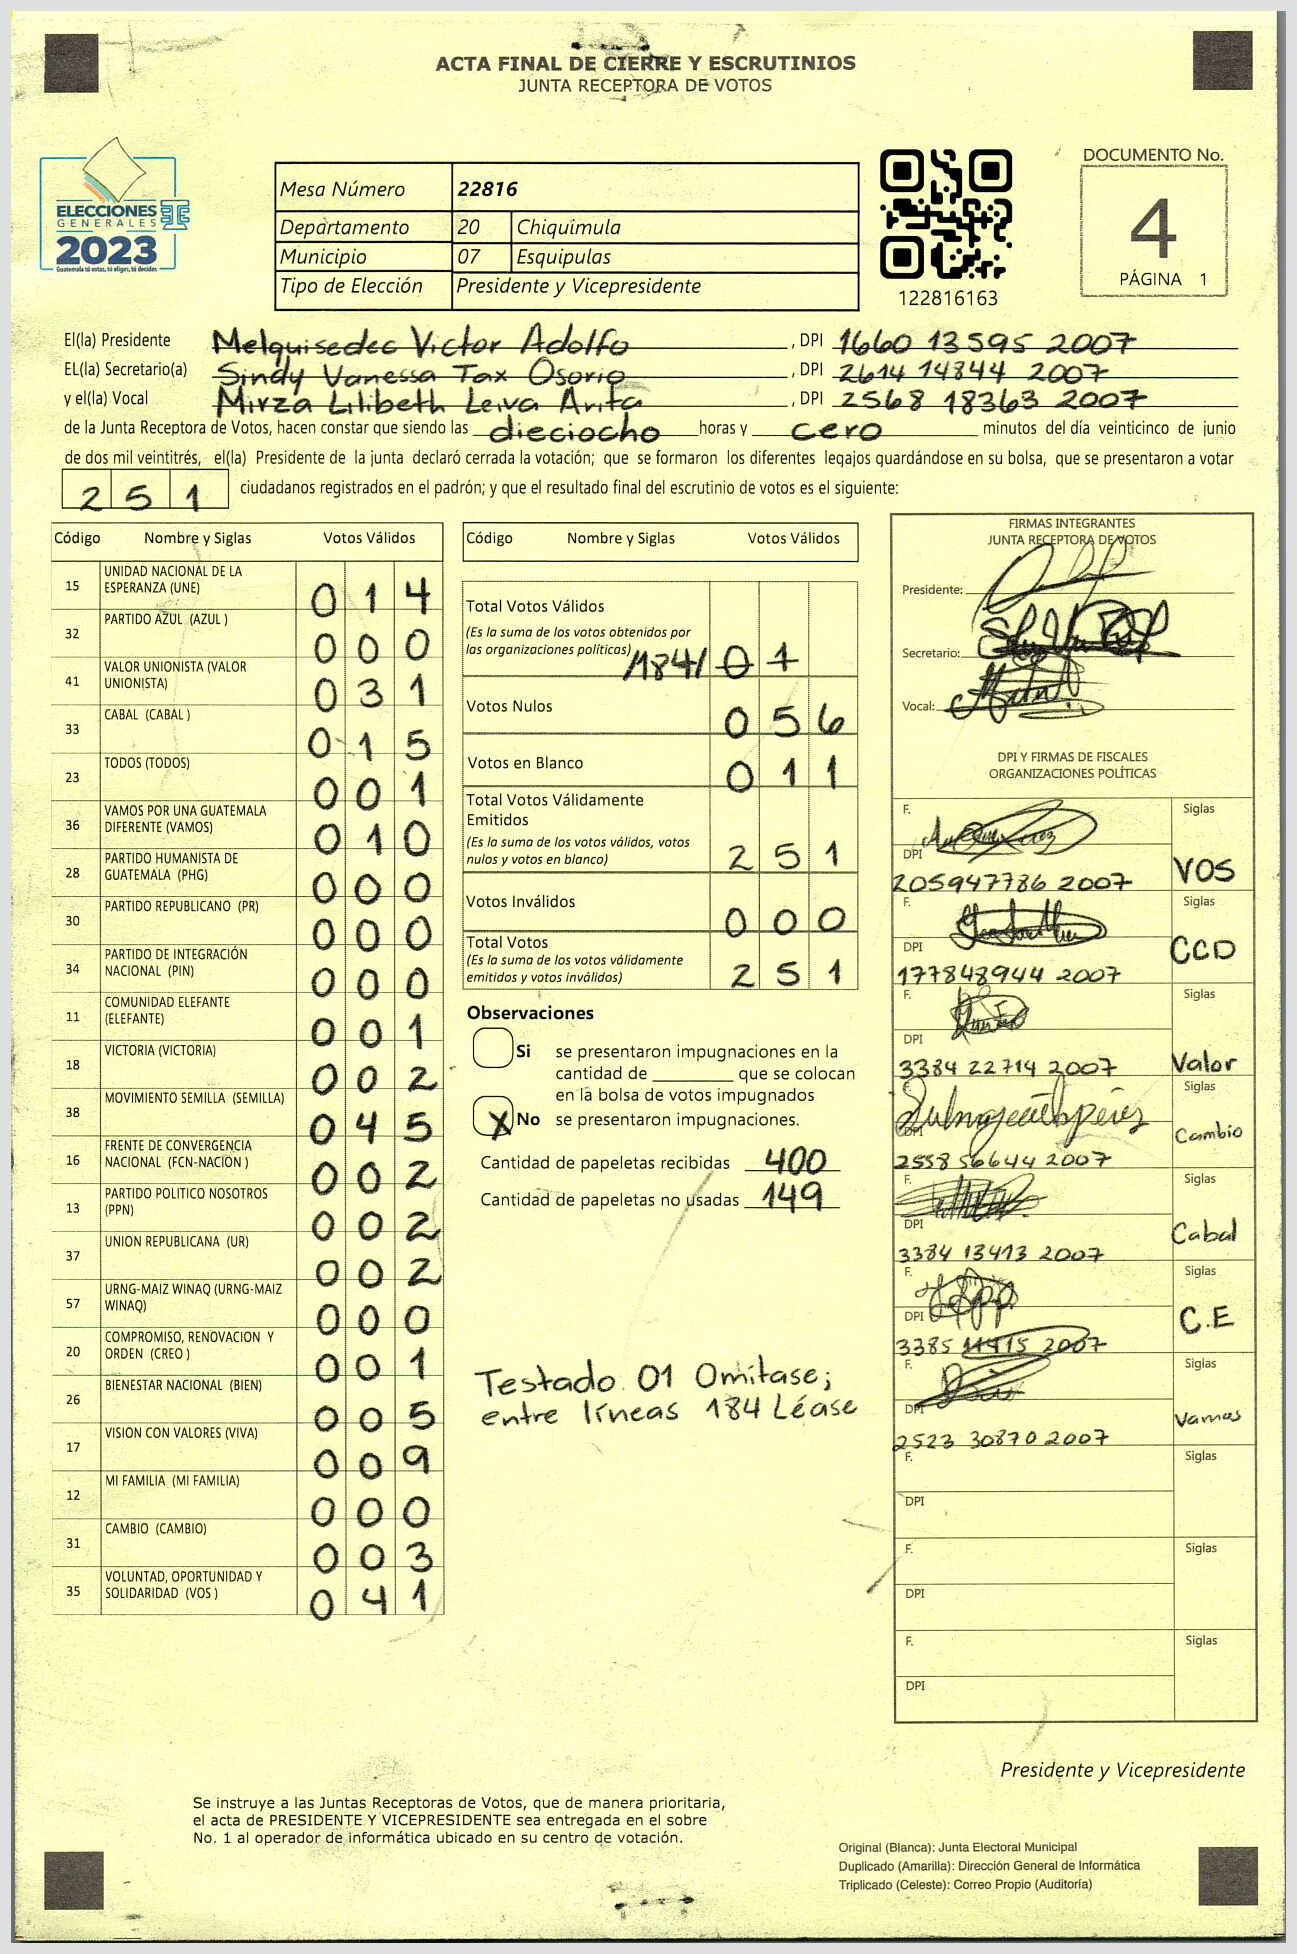 ACTA FINAL DE CIERRE Y ESCRUTINIOS
JUNTA RECEPTORA DE VOTOS
ELECCIONES
GENERALES
2023
Guatemala tú estas, tú eliges, tú decides
Mesa Número 22816
Departamento 20 Chiquimula
Municipio 07 Esquipulas
Tipo de Elección Presidente y Vicepresidente
122816163
DOCUMENTO No.
4
PÁGINA 1
El(la) Presidente Melquisedec Victor Adolfo , DPI 1660 13595 2007
EL(la) Secretario(a) Sindy Vanessa Tax Osorio , DPI 2614 14844 2007
y el(la) Vocal Mirza Lilibeth Leiva Arita , DPI 2568 18363 2007
de la Junta Receptora de Votos, hacen constar que siendo las dieciocho horas y cero minutos del día veinticinco de junio
de dos mil veintitrés, el(la) Presidente de la junta declaró cerrada la votación; que se formaron los diferentes legajos guardándose en su bolsa, que se presentaron a votar
251 ciudadanos registrados en el padrón; y que el resultado final del escrutinio de votos es el siguiente:
Código Nombre y Siglas Votos Válidos
15 UNIDAD NACIONAL DE LA ESPERANZA (UNE) 014
32 PARTIDO AZUL (AZUL ) 000
41 VALOR UNIONISTA (VALOR UNIONISTA) 031
33 CABAL (CABAL ) 015
23 TODOS (TODOS) 001
36 VAMOS POR UNA GUATEMALA DIFERENTE (VAMOS) 010
28 PARTIDO HUMANISTA DE GUATEMALA (PHG) 000
30 PARTIDO REPUBLICANO (PR) 000
34 PARTIDO DE INTEGRACIÓN NACIONAL (PIN) 000
11 COMUNIDAD ELEFANTE (ELEFANTE) 001
18 VICTORIA (VICTORIA) 002
38 MOVIMIENTO SEMILLA (SEMILLA) 045
16 FRENTE DE CONVERGENCIA NACIONAL (FCN-NACION ) 002
13 PARTIDO POLITICO NOSOTROS (PPN) 002
37 UNION REPUBLICANA (UR) 002
57 URNG-MAIZ WINAQ (URNG-MAIZ WINAQ) 000
20 COMPROMISO, RENOVACION Y ORDEN (CREO ) 001
26 BIENESTAR NACIONAL (BIEN) 005
17 VISION CON VALORES (VIVA) 009
12 MI FAMILIA (MI FAMILIA) 000
31 CAMBIO (CAMBIO) 003
35 VOLUNTAD, OPORTUNIDAD Y SOLIDARIDAD (VOS ) 041
Código Nombre y Siglas Votos Válidos
Total Votos Válidos
(Es la suma de los votos obtenidos por
las organizaciones políticas) /184/ 01
Votos Nulos 056
Votos en Blanco 011
Total Votos Válidamente
Emitidos
(Es la suma de los votos válidos, votos
nulos y votos en blanco) 251
Votos Inválidos 000
Total Votos
(Es la suma de los votos válidamente
emitidos y votos inválidos) 251
Observaciones
Si se presentaron impugnaciones en la
cantidad de ________ que se colocan
en la bolsa de votos impugnados
X No se presentaron impugnaciones.
Cantidad de papeletas recibidas 400
Cantidad de papeletas no usadas 149
Testado 01 Omitase;
entre líneas 184 Léase
FIRMAS INTEGRANTES
JUNTA RECEPTORA DE VOTOS
Presidente:
Secretario:
Vocal:
DPI Y FIRMAS DE FISCALES
ORGANIZACIONES POLÍTICAS
F. Siglas
DPI VOS
205947786 2007
F. Siglas
DPI CCD
177848944 2007
F. Siglas
DPI
3384 22714 2007 Valor
F. Siglas
DPI Cambio
2558 56644 2007
F. Siglas
DPI Cabal
3384 13413 2007
F. Siglas
DPI C.E
3385 11415 2007
F. Siglas
DPI Vamos
2523 30870 2007
F. Siglas
DPI
F. Siglas
DPI
F. Siglas
DPI
Presidente y Vicepresidente
Se instruye a las Juntas Receptoras de Votos, que de manera prioritaria,
el acta de PRESIDENTE Y VICEPRESIDENTE sea entregada en el sobre
No. 1 al operador de informática ubicado en su centro de votación.
Original (Blanca): Junta Electoral Municipal
Duplicado (Amarilla): Dirección General de Informática
Triplicado (Celeste): Correo Propio (Auditoría)